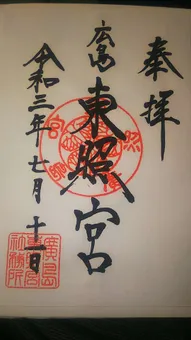 奉拝
広島東照宮
令和三年七月十一日
廣島東照宮社務所